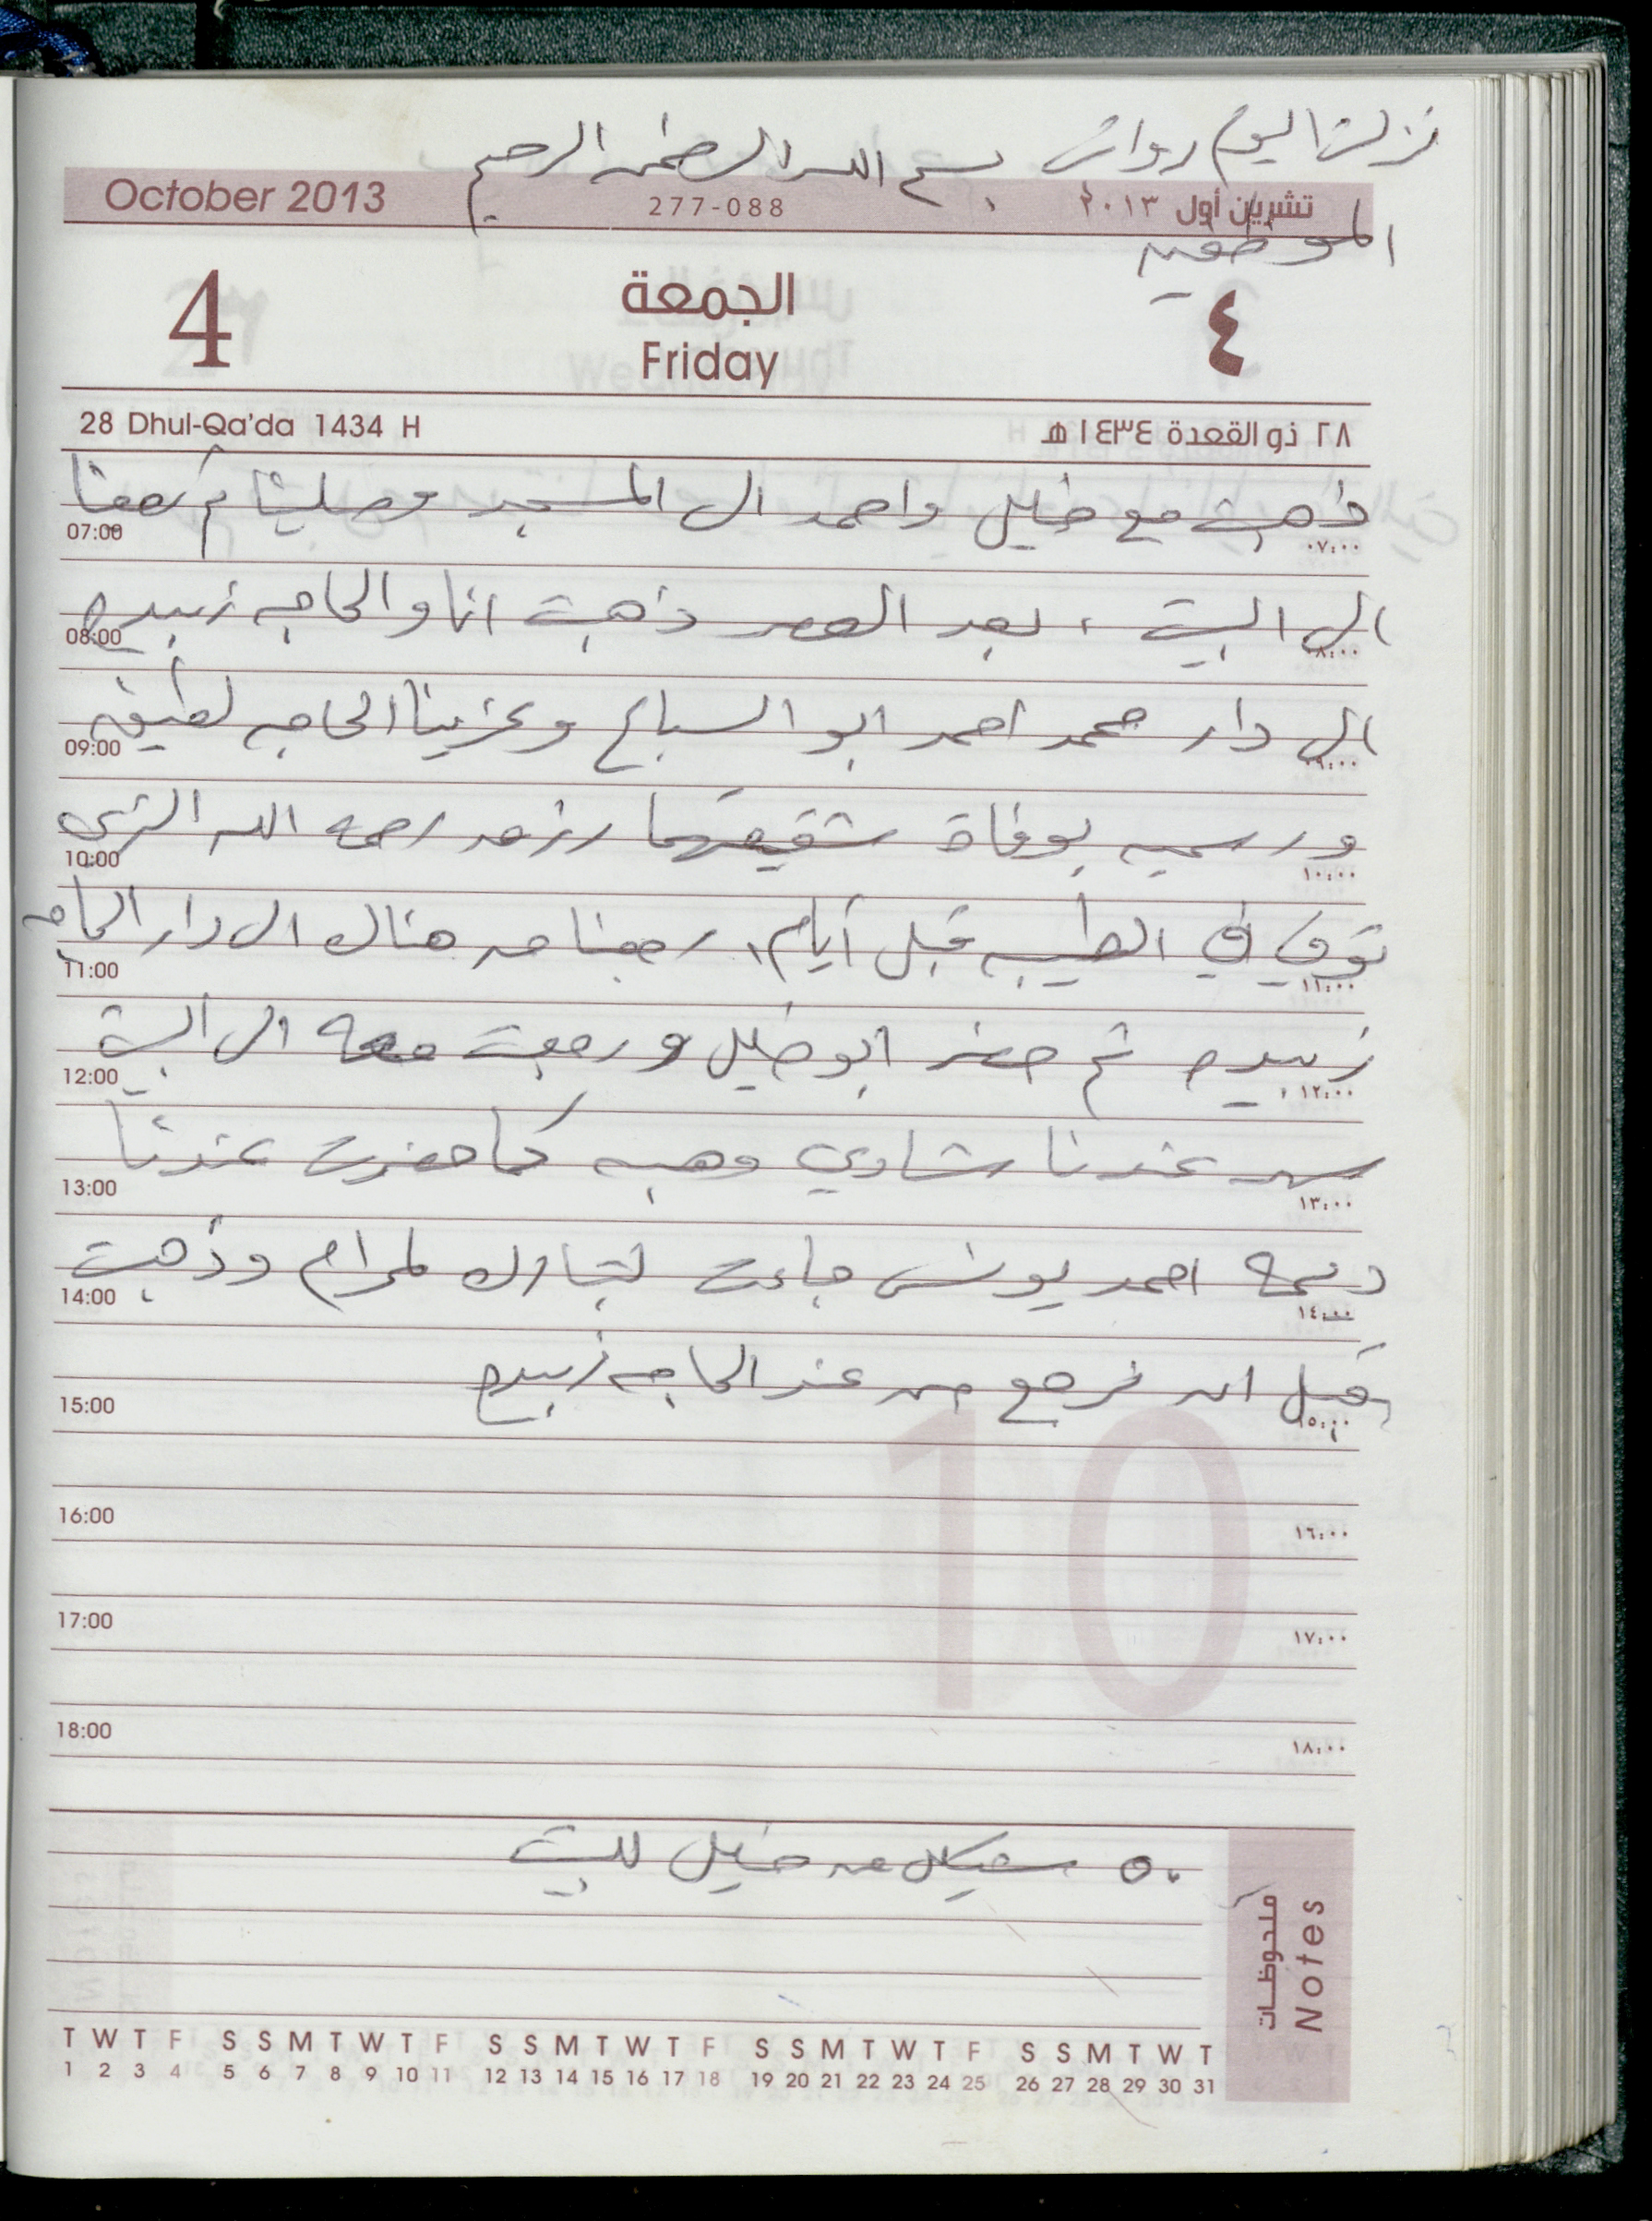 نزلت اليوم رواتب
بسم الله الرحمن الرحيم
الموظفين
October 2013
277-088
تشرين أول ٢٠١٣
4
الجمعة
Friday
٤
28 Dhul-Qa'da 1434 H
٢٨ ذو القعدة ١٤٣٤ هـ
ذهبت مع خليل واحمد الى المسجد وصلينا ثم رجعنا
07:00 ٠٧:٠٠
الى البيت ، بعد العصر ذهبت انا والحاجه زبيده
08:00 ٠٨:٠٠
الى دار محمد احمد ابو السباع وعزينا الحاجه لطيفه
09:00 ٠٩:٠٠
ورسميه بوفاة شقيقهما رحمه الله الذي
10:00 ١٠:٠٠
توفي في الطيبه قبل أيام، رجعنا من هناك الى دار الحاجه
11:00 ١١:٠٠
زبيده ثم حضر ابو خليل ورجعت معه الى البيت
12:00 ١٢:٠٠
سهر عندنا شادي وهبه كما حضرت عندنا
13:00 ١٣:٠٠
احمد يونس جاءت لتبارك لمرام وذهبت
14:00 ١٤:٠٠
قبل ان نرجع من عند الحاجه زبيده
15:00 ١٥:٠٠
10
16:00 ١٦:٠٠
17:00 ١٧:٠٠
18:00 ١٨:٠٠
٥٠ شيكل من خليل للبيت
ملحوظات
Notes
T W T F S S M T W T F S S M T W T F S S M T W T F S S M T W T
1 2 3 4 5 6 7 8 9 10 11 12 13 14 15 16 17 18 19 20 21 22 23 24 25 26 27 28 29 30 31